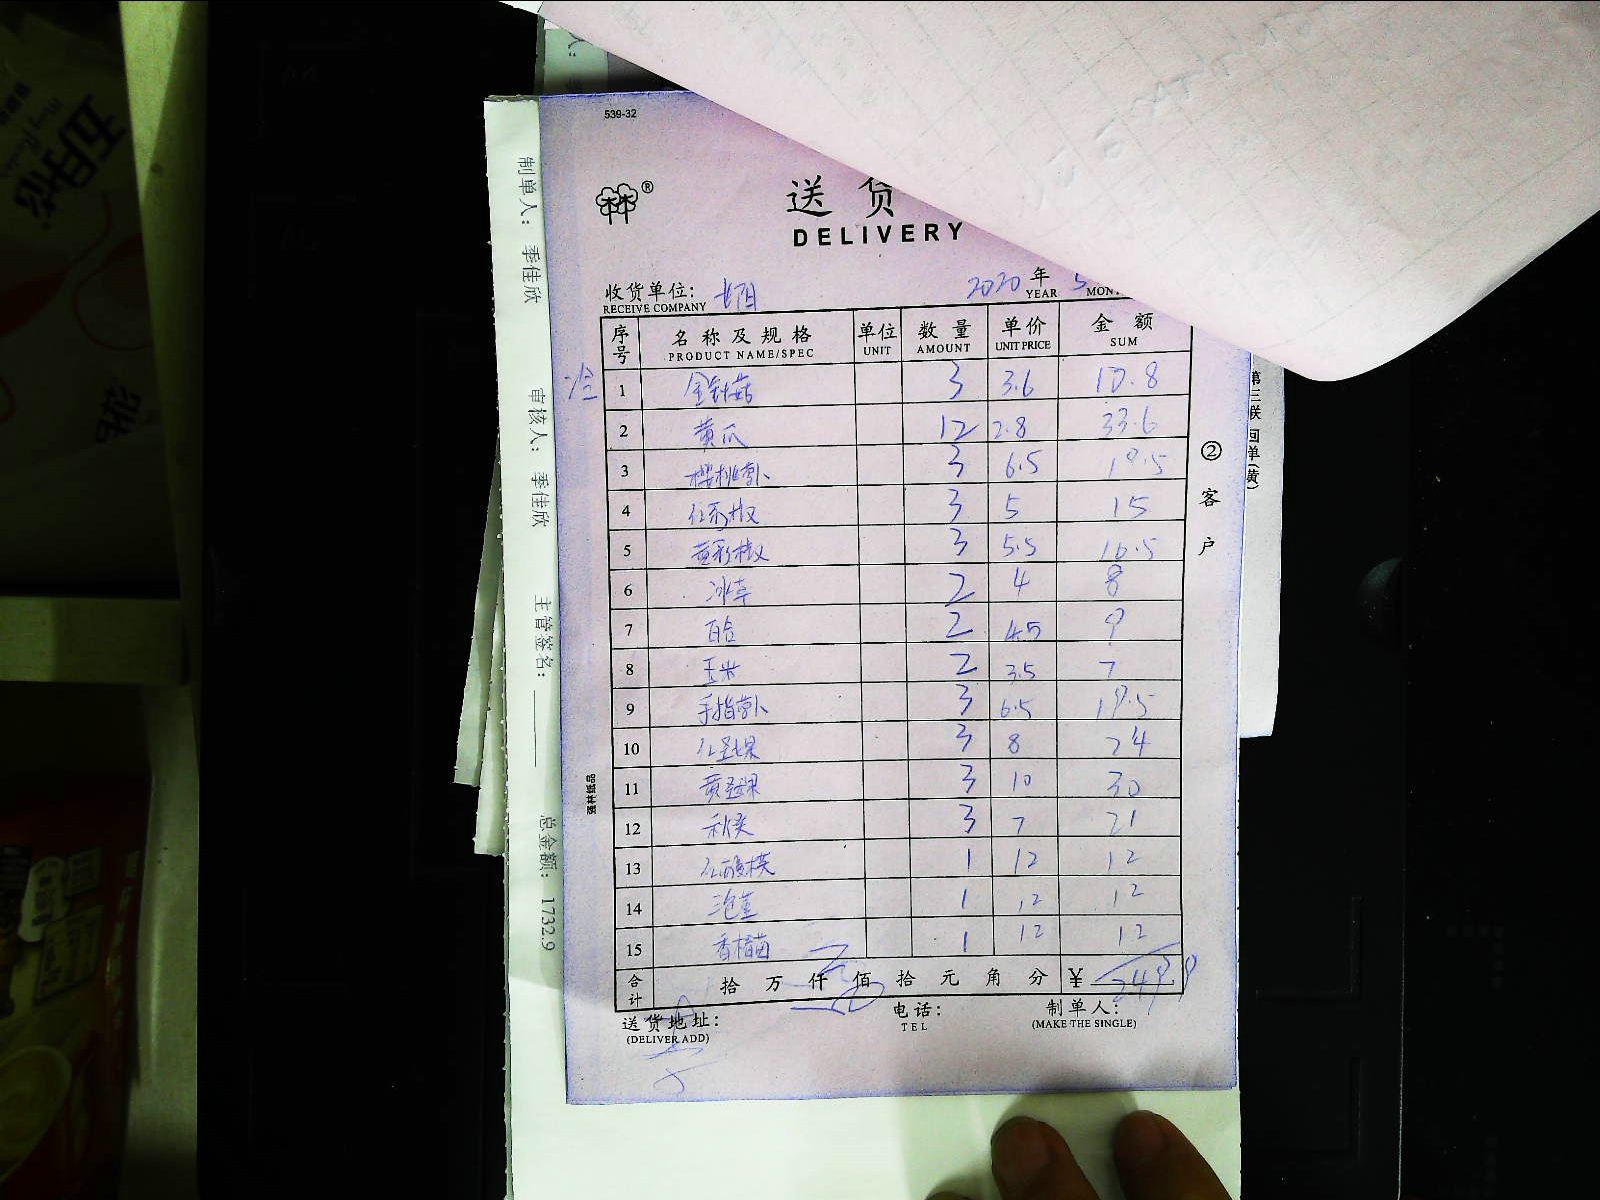 539-32
送 货
DELIVERY
收货单位: RECEIVE COMPANY 2020 年 YEAR 5 MON
序号 名称及规格 PRODUCT NAME/SPEC 单位 UNIT 数量 AMOUNT 单价 UNIT PRICE 金额 SUM
1 金针菇 3 3.6 10.8
2 黄瓜 12 2.8 33.6
3 樱桃萝卜 3 6.5 19.5
4 红彩椒 3 5 15
5 黄彩椒 3 5.5 16.5
6 冰草 2 4 8
7 百合 2 4.5 9
8 玉米 2 3.5 7
9 手指萝卜 3 6.5 19.5
10 红圣女果 3 8 24
11 黄圣女果 3 10 30
12 秋葵 3 7 21
13 红酸模 1 12 12
14 1 12 12
15 1 12 12
合计 拾 万 仟 佰 拾 元 角 分 ¥ 249.9
送货地址: 电话: 制单人:
(DELIVER ADD) TEL (MAKE THE SINGLE)
② 客户
强林纸品
第三联 回单(黄)
制单人: 季佳欣 审核人: 季佳欣 主管签名: 总金额: 1732.9
五月花